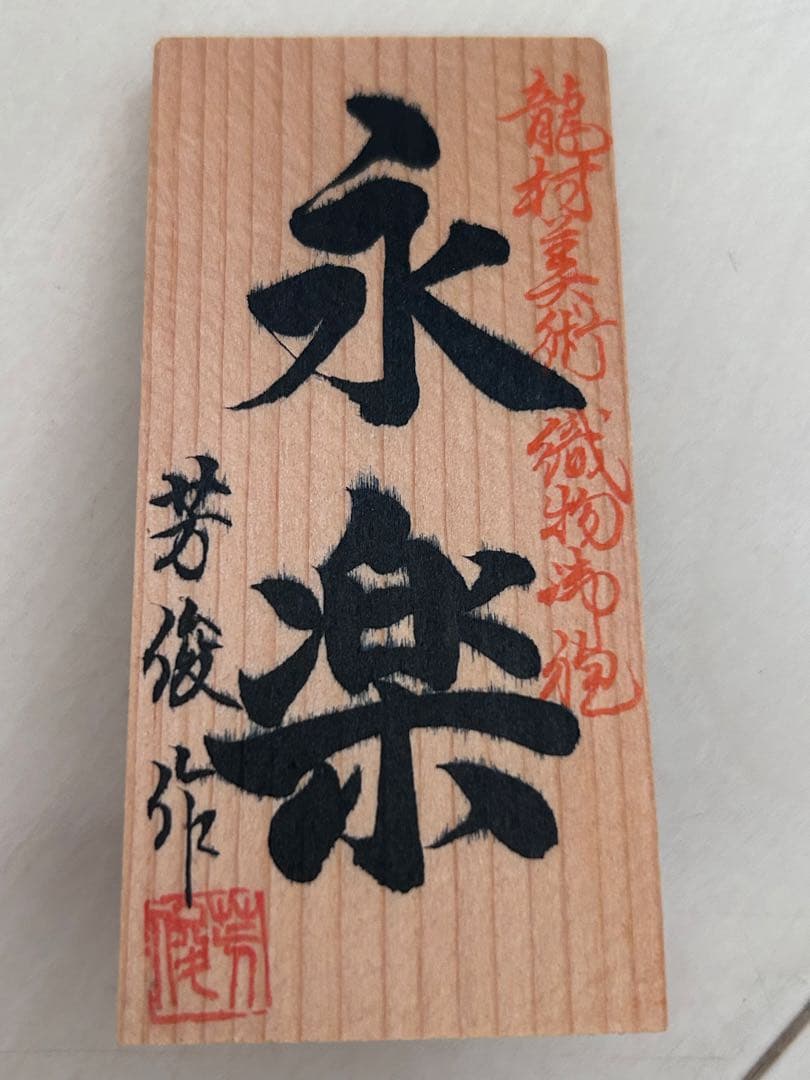 龍村美術織物御袍
永楽
芳俊作
芳俊